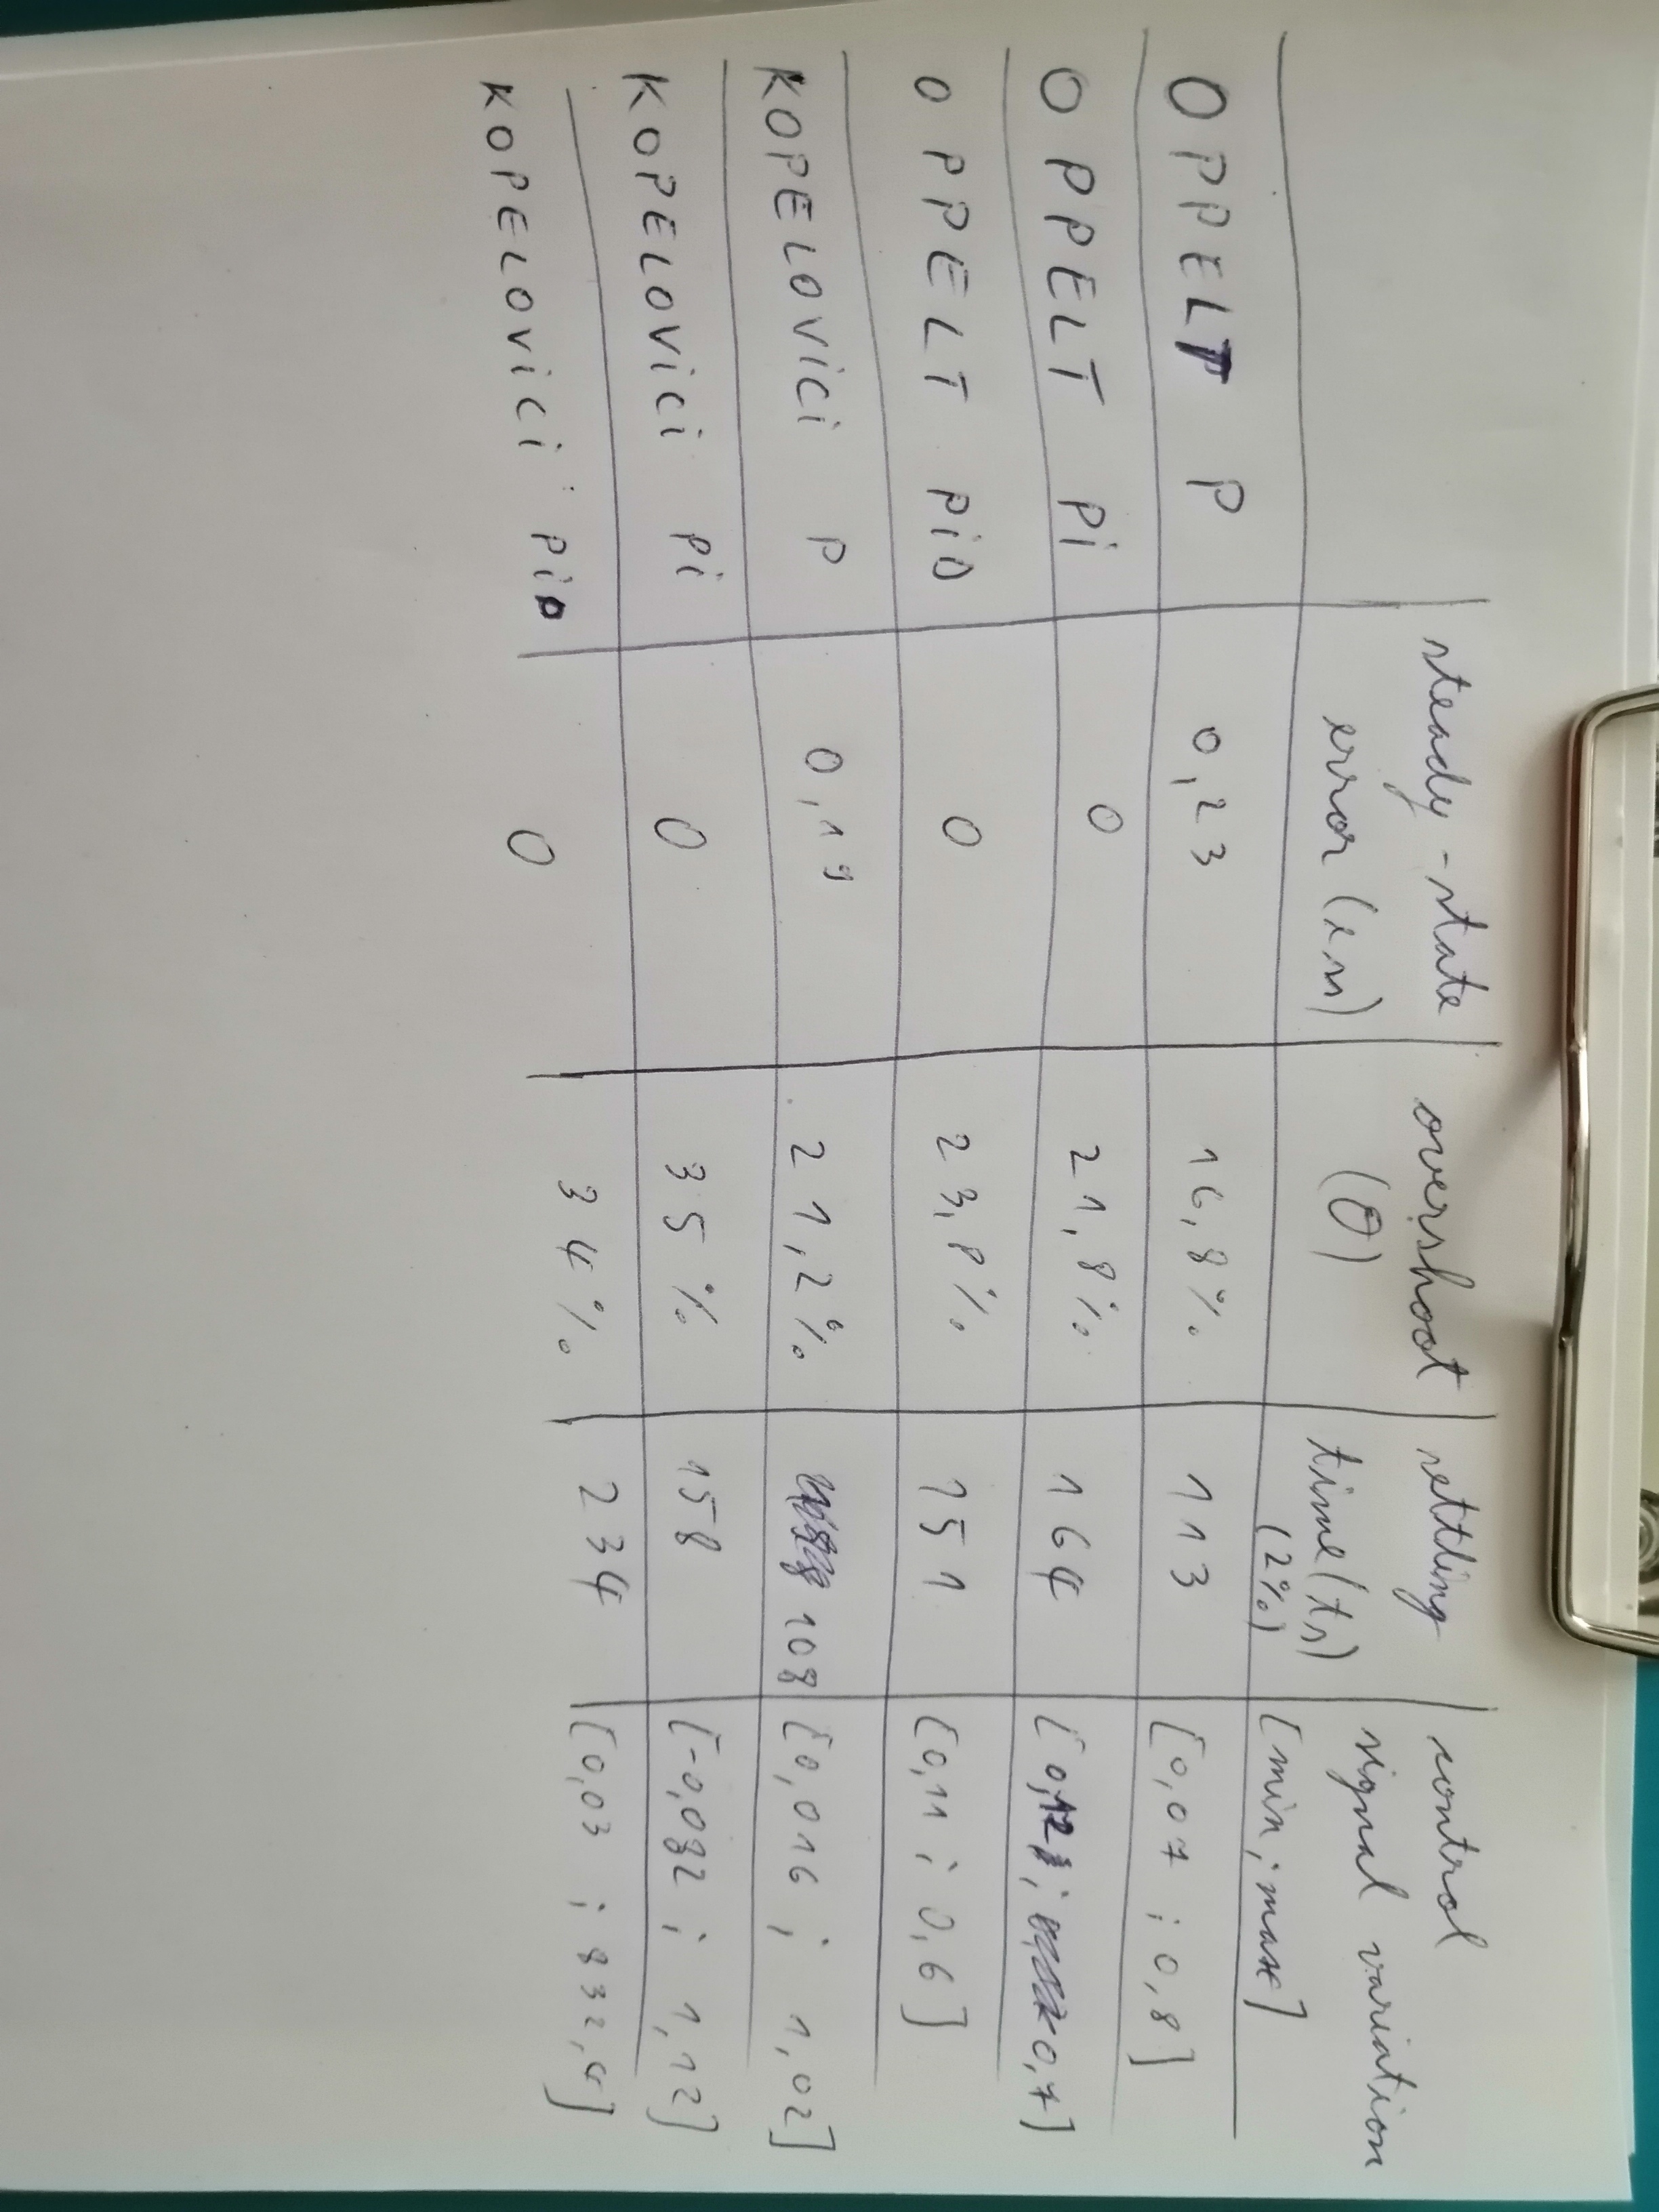 steady-state error (ess) | overshoot (σ) | settling time (ts) (2%) | control signal variation [min ; max]
OPPELT P | 0,23 | 16,8% | 113 | [0,07 ; 0,8]
OPPELT Pi | 0 | 21,8% | 164 | [0,12 ; 0,7]
OPPELT PiD | 0 | 23,8% | 151 | [0,11 ; 0,6]
KOPELOVICI P | 0,19 | 21,2% | 108 | [0,016 ; 1,02]
KOPELOVICI Pi | 0 | 35% | 158 | [-0,032 ; 1,12]
KOPELOVICI PiD | 0 | 34% | 234 | [0,03 ; 832,4]